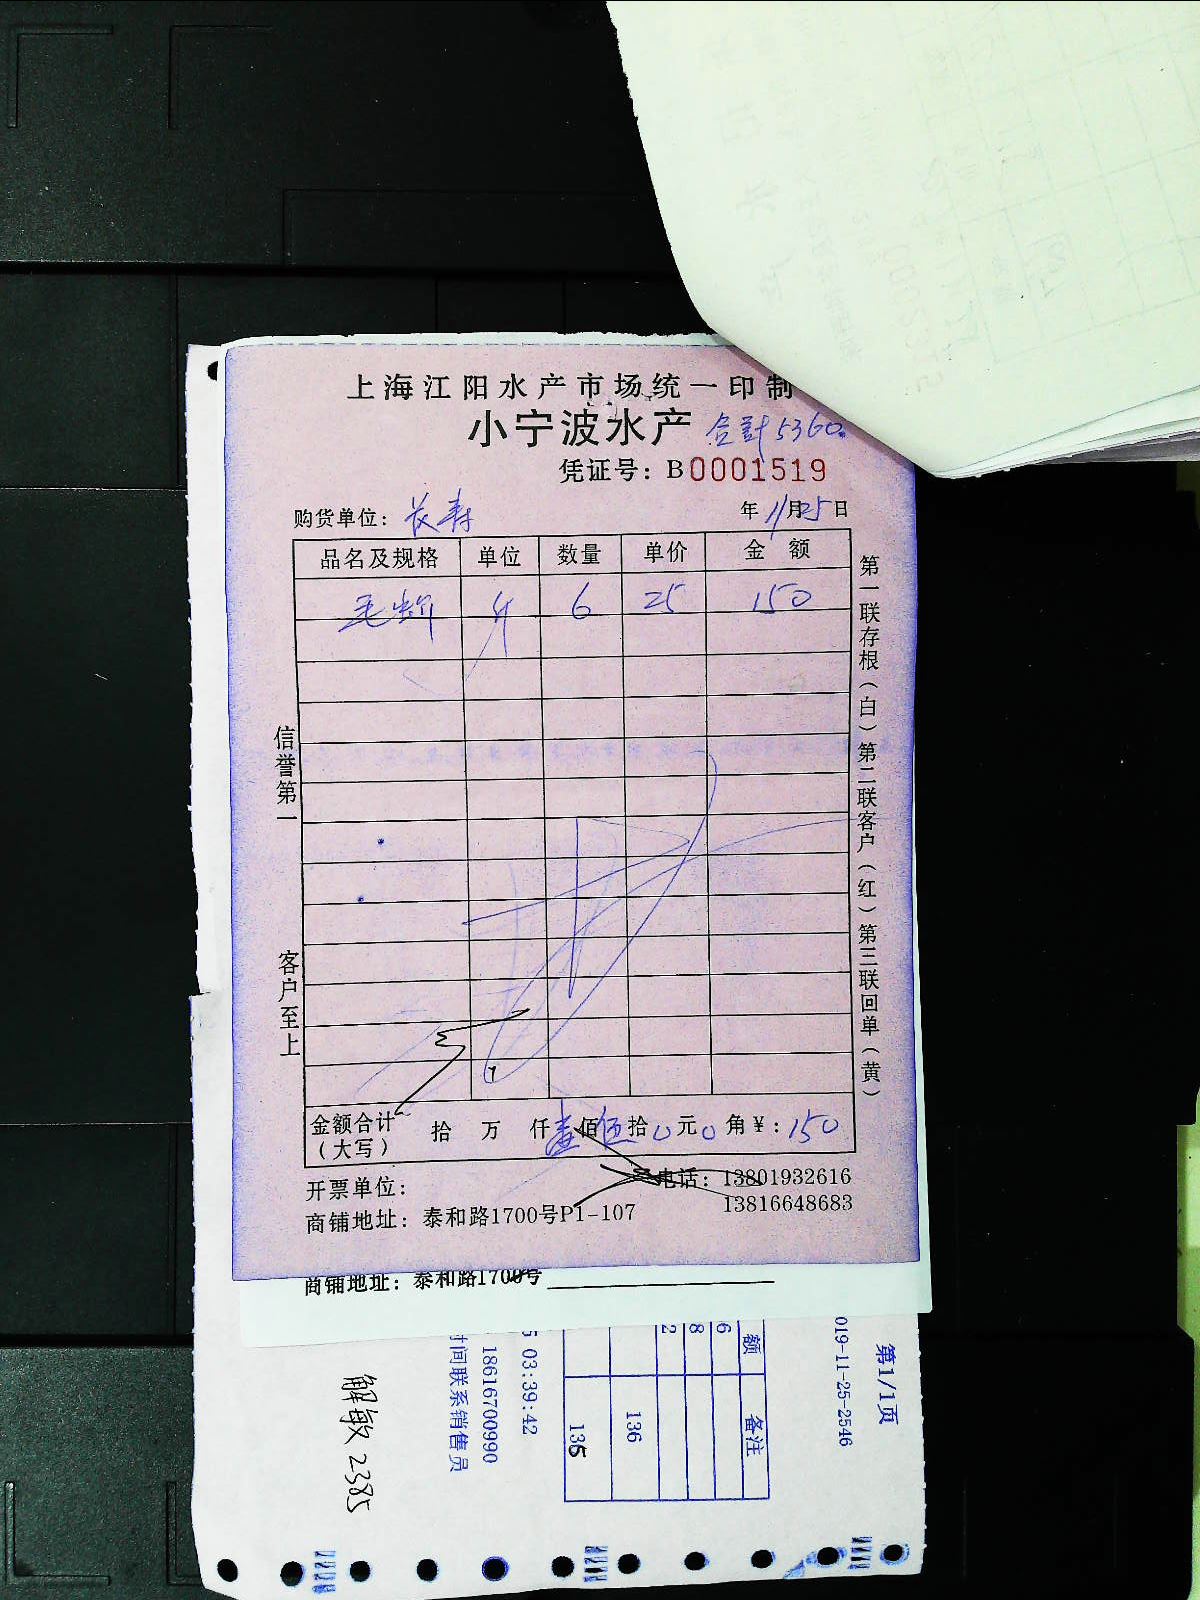 上海江阳水产市场统一印制
小宁波水产 合計5360.
凭证号：B0001519
购货单位：长寿 年11月25日
品名及规格 单位 数量 单价 金额
毛蚶 斤 6 25 150
信誉第一
客户至上
第一联存根（白）第二联客户（红）第三联回单（黄）
金额合计（大写） 拾 万 仟壹佰伍拾0元0角¥：150
开票单位：
电话：13801932616
13816648683
商铺地址：泰和路1700号P1-107
商铺地址：泰和路1700号
第1/1页
019-11-25-2546
额 备注
6
8
2
136
135
03:39:42
18616700990
时间联系销售员
解敏 2385